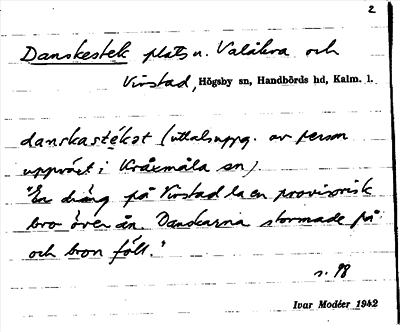 2
Danskestek plats n. Valåkra och
Virstad, Högsby sn, Handbörds hd, Kalm. l.
danskastékət (uttalsuppg. av person
uppväxt i Kråxmåla sn)
"En dräng på Virstad la en provisorisk
bro över ån. Danskarna stormade på
och bron föll."
s. 98
Ivar Modéer 1942